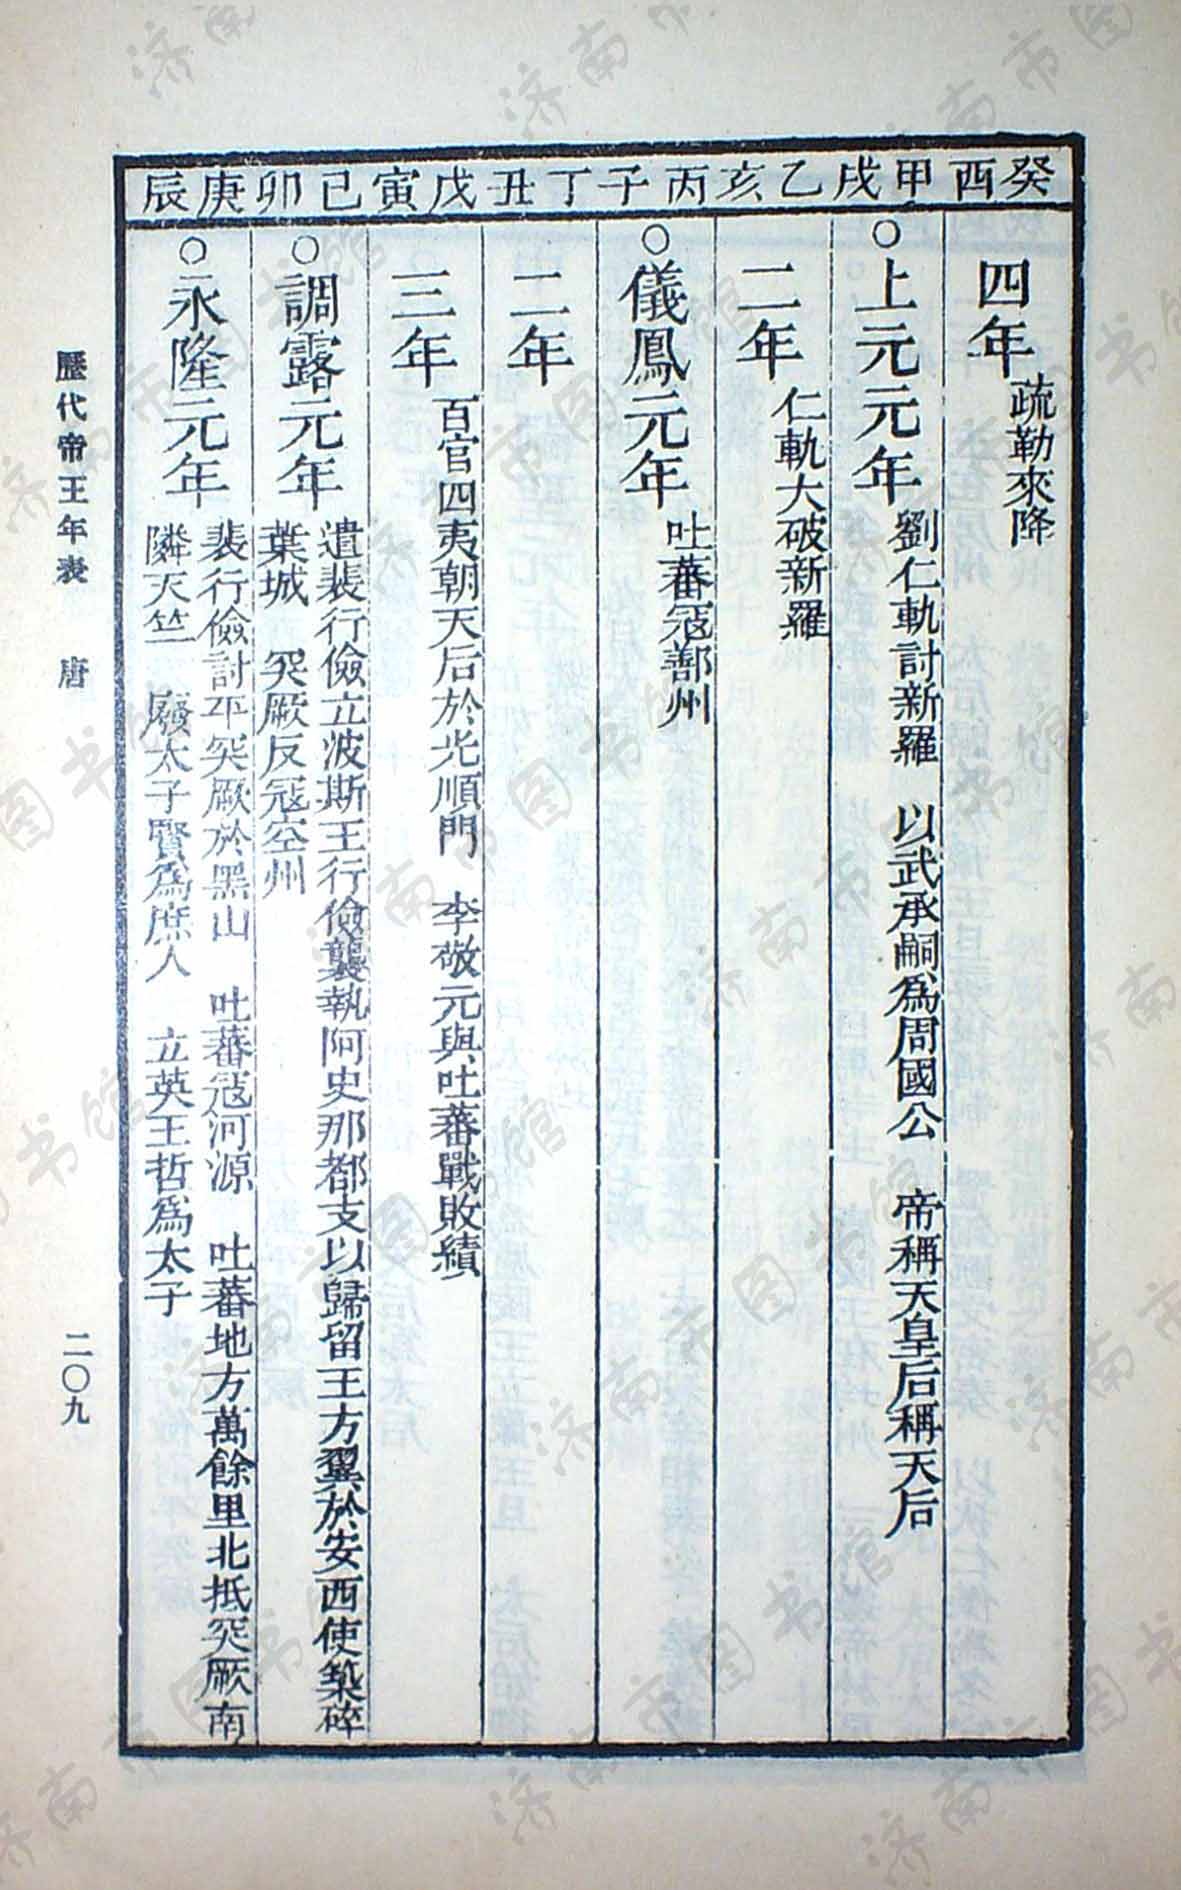 癸酉 甲戌 乙亥 丙子 丁丑 戊寅 己卯 庚辰
四年 疏勒來降
○上元元年 劉仁軌討新羅 以武承嗣爲周國公 帝稱天皇后稱天后
二年 仁軌大破新羅
○儀鳳元年 吐蕃寇鄯州
二年
三年 百官四夷朝天后於光順門 李敬元與吐蕃戰敗績
○調露元年 遣裴行儉立波斯王行儉襲執阿史那都支以歸留王方翼於安西使築碎
葉城 突厥反寇定州
○永隆元年 裴行儉討平突厥於黑山 吐蕃寇河源 吐蕃地方萬餘里北抵突厥南
隣天竺 廢太子賢爲庶人 立英王哲爲太子
歷代帝王年表 唐 二〇九
济南市图书馆